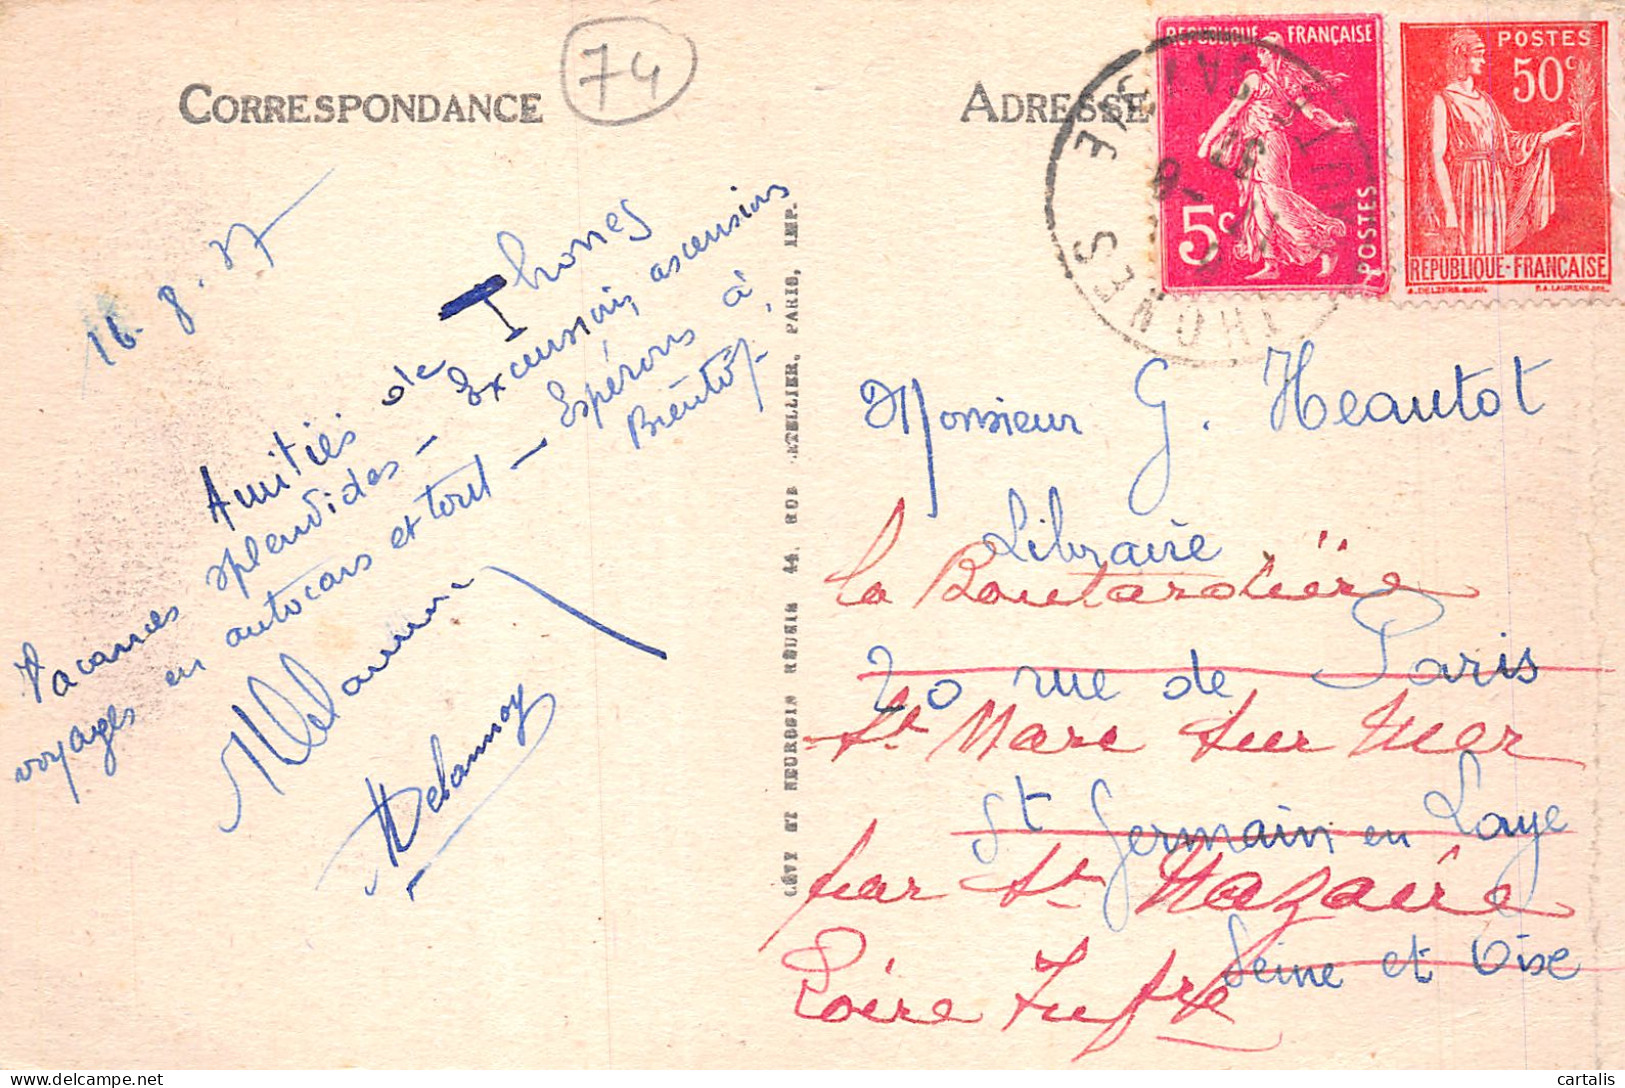 CORRESPONDANCE
74
ADRESSE
REPUBLIQUE FRANÇAISE
5c
POSTES
POSTES
50c
REPUBLIQUE-FRANÇAISE
THONES
HAUTE SAVOIE
16.8.37
Amitiés de Thones
Vacances splendides - Excursions, ascensions
voyages en autocars et tout - Espérons à
Bientôt.
Delannoy
LÉVY ET NEURDEIN RÉUNIS 44, RUE LETELLIER, PARIS, IMP.
Monsieur G. Heautot
Libraire
20 rue de Paris
St Germain en Laye
Seine et Oise
la Boutardière
St Marc sur Mer
par St Nazaire
Loire Infre
cartalis